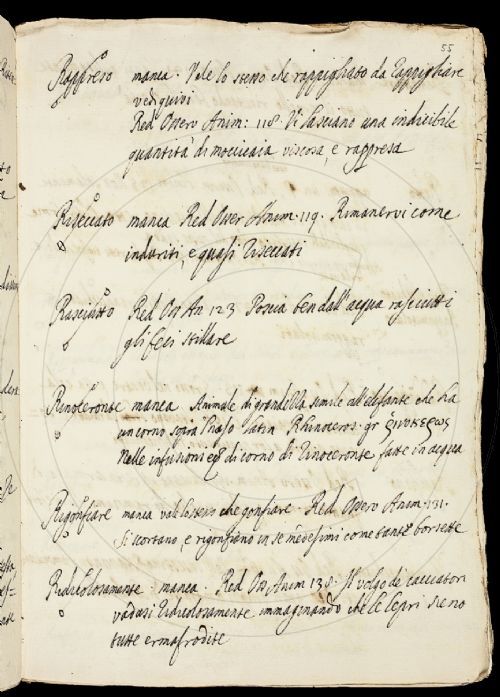 55
Rappreso manca. Vale lo stesso che rappigliato da Rappigliare
vedi quivi
Red Osserv Anim: 118. Vi lasciano una indicibile
quantità di mocciccaia viscosa, e rappresa
Riseccato manca Red Osser Anim. 119. Rimanervi come
induriti, e quasi riseccati
Rasciutto Red Os An 123 Poscia ben dall'acqua rasciutti
gli feci stillare
Rinoceronte manca Animale di grandezza simile all'elefante che ha
un corno sopra il naso latin. Rhinoceros. gr ῥινοκερως
Nelle infusioni di corno di rinoceronte fatte in acqua
Rigonfiare manca vale lo stesso che gonfiare. Red. Osserv Anim. 131.
si scortano, e rigonfiano in se medesimi come tante borsette
Ridicolosamente. manca. Red Os Anim 138. Il volgo de cacciatori
ridicolosamente immaginando che le lepri sieno
tutte ermafrodite